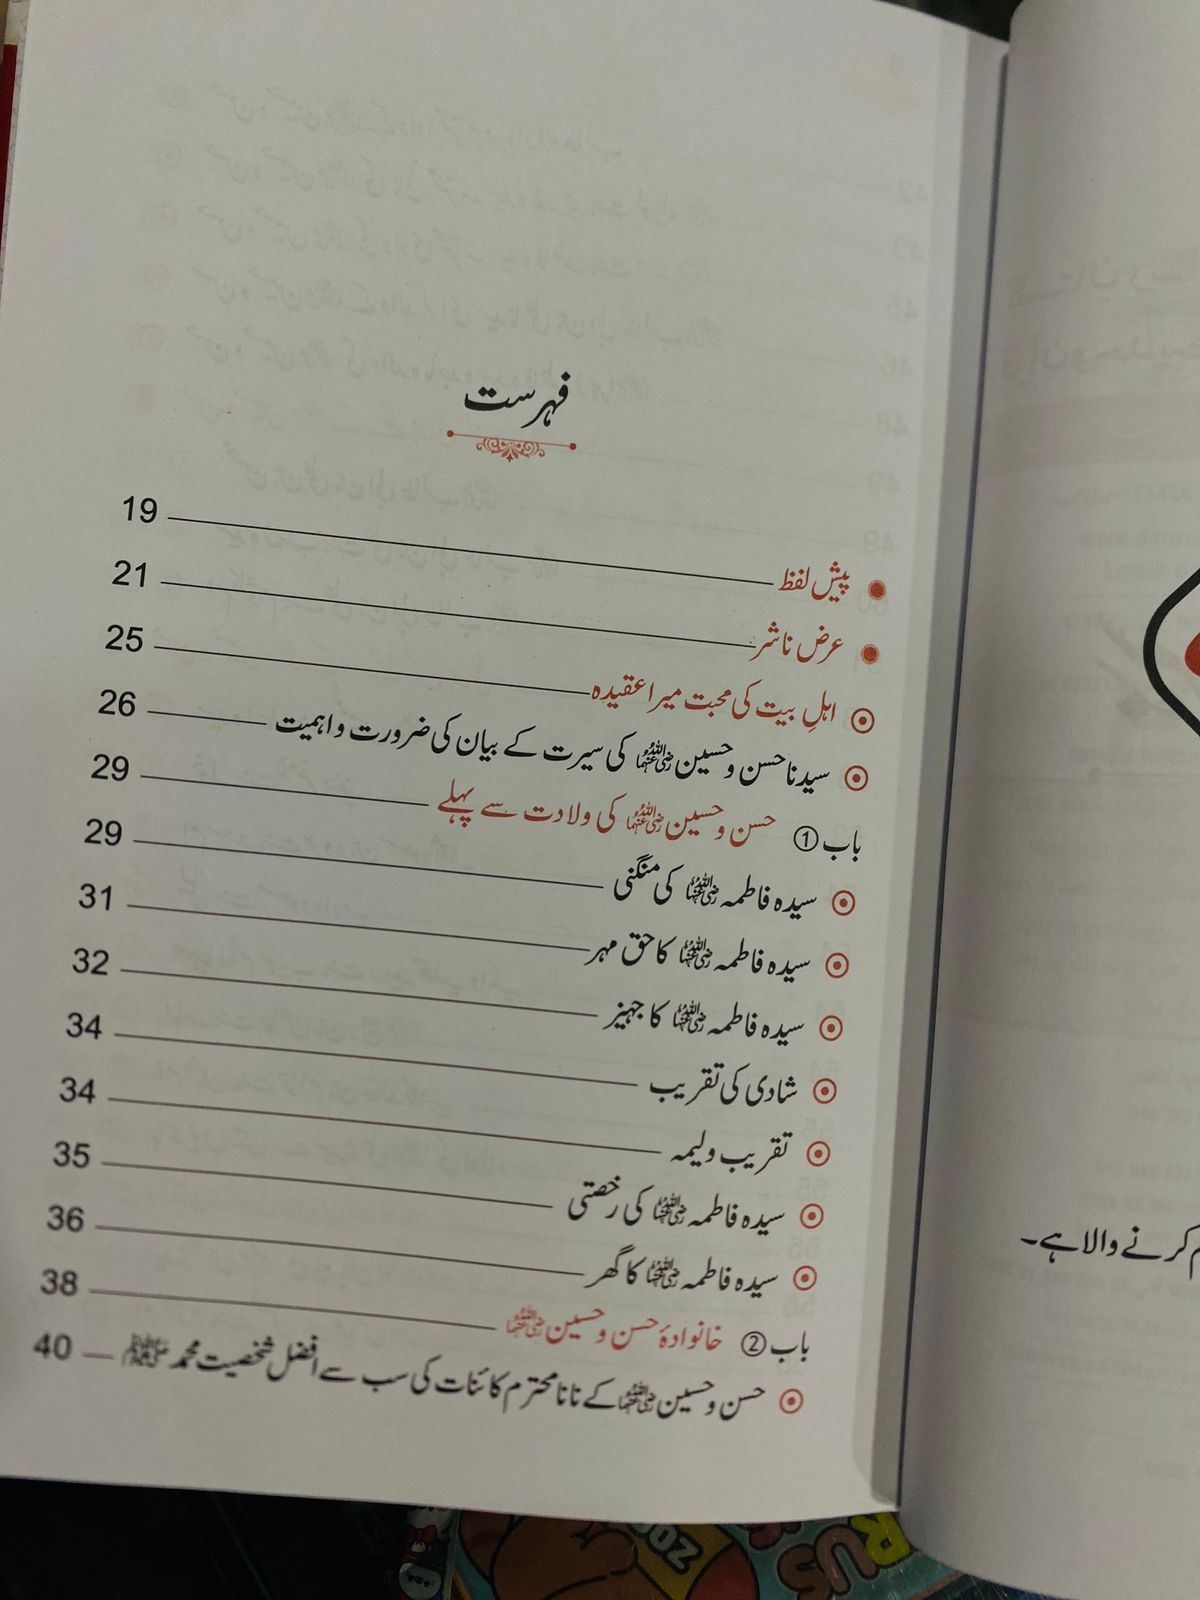 فہرست
پیش لفظ 19
عرض ناشر 21
اہلِ بیت کی محبت میرا عقیدہ 25
سیدنا حسن و حسین رضی اللہ عنہما کی سیرت کے بیان کی ضرورت و اہمیت 26
باب ① حسن و حسین رضی اللہ عنہما کی ولادت سے پہلے 29
سیدہ فاطمہ رضی اللہ عنہا کی منگنی 29
سیدہ فاطمہ رضی اللہ عنہا کا حق مہر 31
سیدہ فاطمہ رضی اللہ عنہا کا جہیز 32
شادی کی تقریب 34
تقریب ولیمہ 34
سیدہ فاطمہ رضی اللہ عنہا کی رخصتی 35
سیدہ فاطمہ رضی اللہ عنہا کا گھر 36
باب ② خانوادۂ حسن و حسین رضی اللہ عنہما 38
حسن و حسین رضی اللہ عنہما کے نانا محترم کائنات کی سب سے افضل شخصیت محمد ﷺ 40
کرنے والا ہے۔